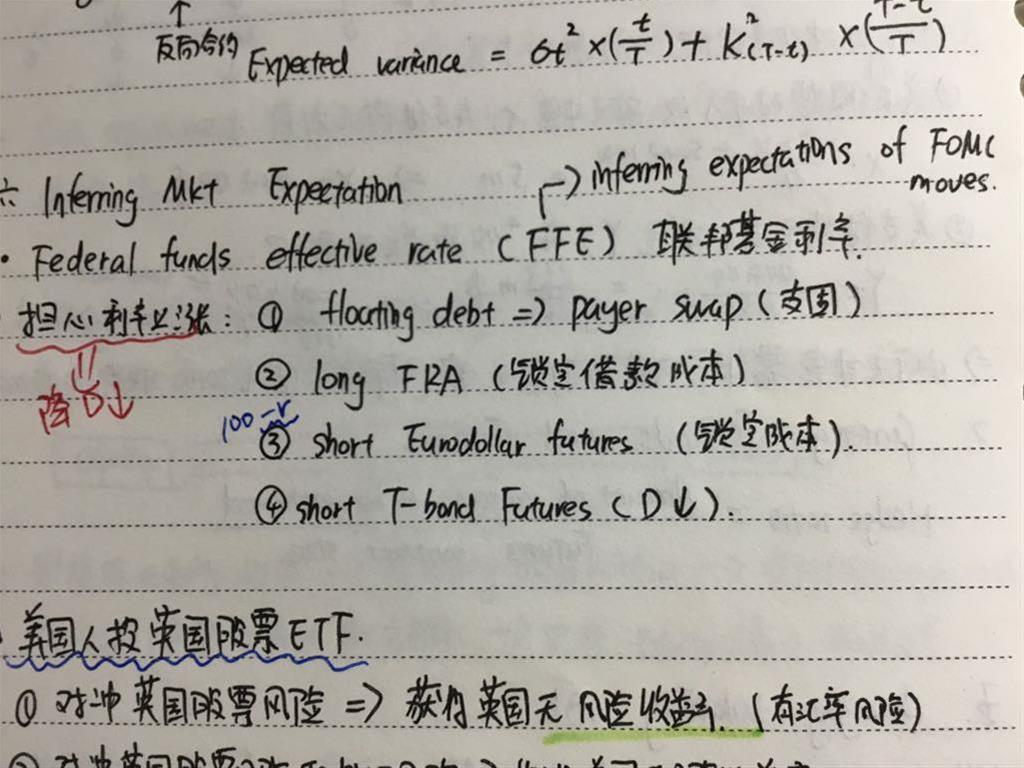 ↑
反向合约 Expected variance = σt² × (t/T) + K²(T-t) × (T-t/T)
六 Inferring Mkt Expectation
→ inferring expectations of FOMC moves.
· Federal funds effective rate (FFE) 联邦基金利率.
担心利率上涨: ① floating debt => payer swap (支固)
降D↓
② long FRA (锁定借款成本)
100-r
③ short Eurodollar futures (锁定成本).
④ short T-bond Futures (D↓).
· 美国人投英国股票ETF.
① 对冲英国股票风险 => 获得英国无风险收益率. (有汇率风险)
② 对冲英国股票风险